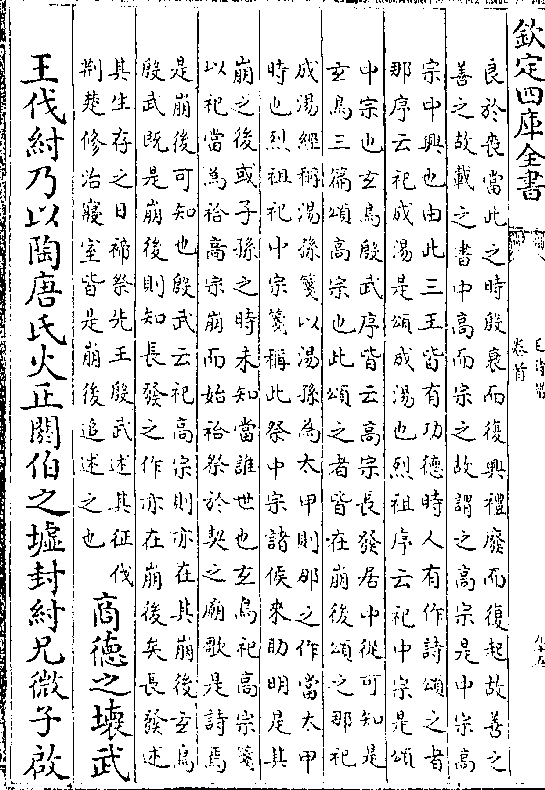 欽定四庫全書
卷首
良於喪當此之時殷衰而復興禮廢而復起故善之
善之故載之書中高而宗之故謂之高宗是中宗高
宗中興也由此三王皆有功德時人有作詩頌之者
那序云祀成湯是頌成湯也烈祖序云祀中宗是頌
中宗也玄鳥殷武序皆云高宗長發居中從可知是
玄鳥三篇頌高宗也此頌之者皆在崩後頌之那祀
成湯經稱湯孫箋以湯孫為太甲則那之作當太甲
時也烈祖祀中宗箋稱此祭中宗諸侯來助明是其
崩之後或子孫之時未知當誰世也玄鳥祀高宗箋
以祀當為祫高宗崩而始祫祭於契之廟歌是詩焉
是崩後可知也殷武云祀高宗則亦在其崩後玄鳥
殷武既是崩後則知長發之作亦在崩後矣長發述
其生存之日禘祭先王殷武述其征伐
荆楚修治寢室皆是崩後追述之也
商德之壞武
王伐紂乃以陶唐氏火正閼伯之墟封紂兄微子啟